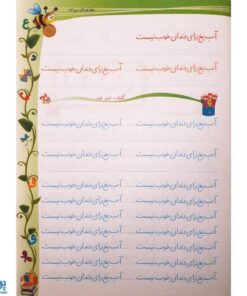 آب یخ برای دندان خوب نیست
آب یخ برای دندان خوب نیست آب یخ برای دندان خوب نیست
آب یخ برای دندان خوب نیست آب یخ برای دندان خوب نیست
آب یخ برای دندان خوب نیست آب یخ برای دندان خوب نیست
آب یخ برای دندان خوب نیست آب یخ برای دندان خوب نیست
آب یخ برای دندان خوب نیست آب یخ برای دندان خوب نیست
آب یخ برای دندان خوب نیست آب یخ برای دندان خوب نیست
آب یخ برای دندان خوب نیست آب یخ برای دندان خوب نیست
آب یخ برای دندان خوب نیست آب یخ برای دندان خوب نیست
آب یخ برای دندان خوب نیست آب یخ برای دندان خوب نیست
آب یخ برای دندان خوب نیست آب یخ برای دندان خوب نیست
آب یخ برای دندان خوب نیست آب یخ برای دندان خوب نیست